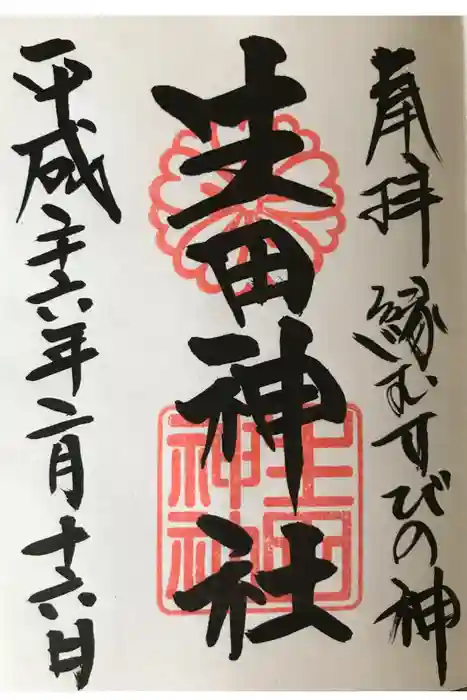 奉拝 縁むすびの神
生田神社
生田
神社
平成二十六年二月十六日